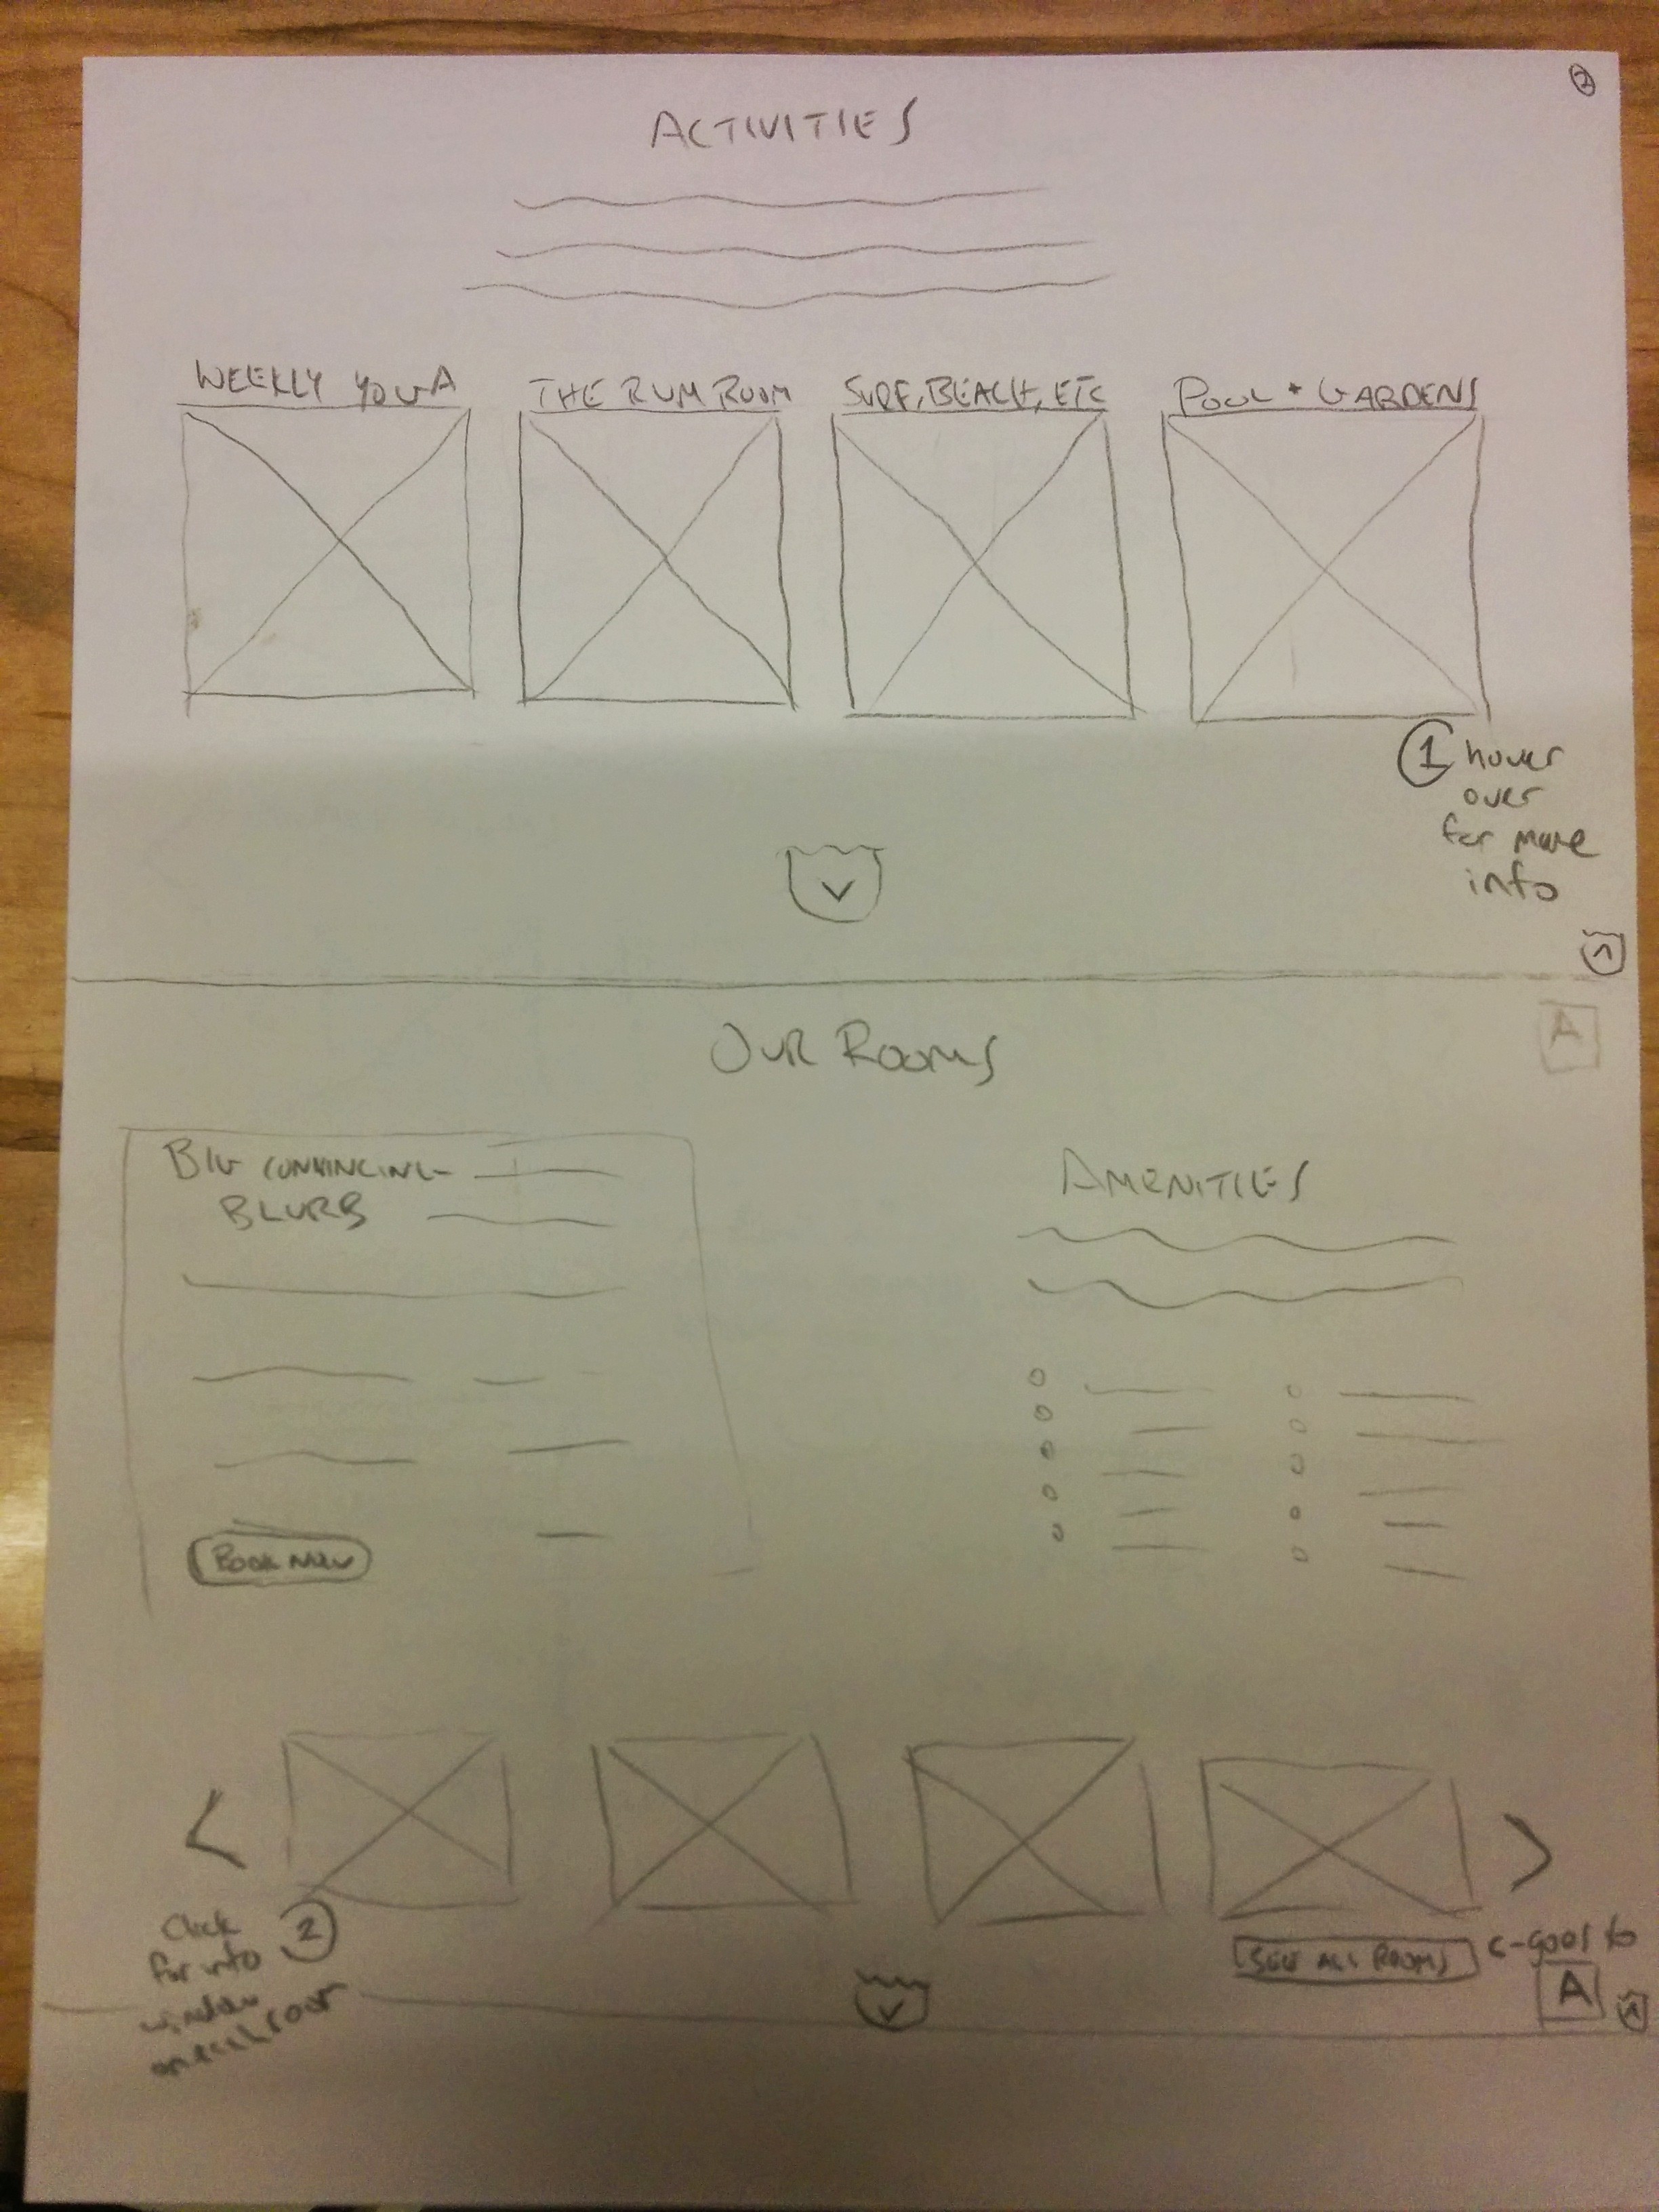 2
ACTIVITIES
WEEKLY YOGA THE RUM ROOM SURF, BEACH, ETC POOL + GARDENS
1 hover
over
for more
info
A
OUR ROOMS
BIG CONVINCING
BLURB
AMENITIES
BOOK NOW
Click 2
for info
window
on each room
SEE ALL ROOMS <-goes to
A